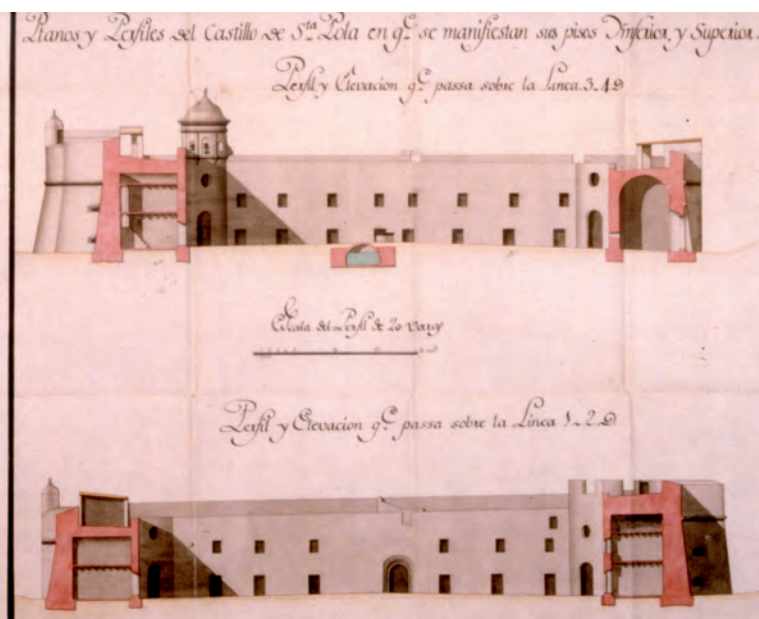 Planos y Perfiles del Castillo de S.ta Pola en q.e se manifiestan sus pisos Ynferior, y Superior.
Perfil y Elevacion q.e passa sobre la Linea 3-4
Escala del Perfil de 20 Varas
Perfil y Elevacion q.e passa sobre la Linea 1-2